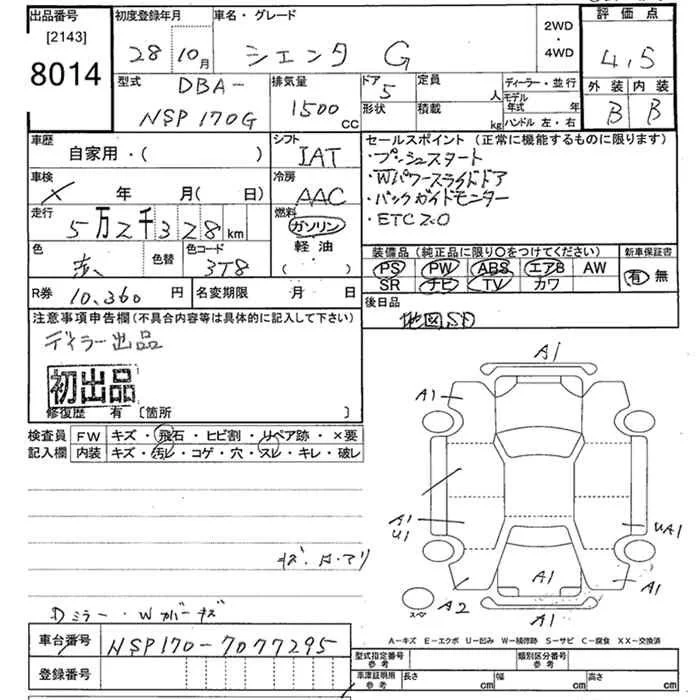 出品番号 初度登録年月 車名・グレード 2WD・4WD 評価点
[2143]
8014
28年10月 シエンタ G 4.5
型式 DBA- 排気量 ドア 5 定員 人 ディーラー・並行 外装 内装
NSP170G 1500cc 形状 積載 kg モデル年式 年 B B
ハンドル 左・右
車歴 シフト セールスポイント(正常に機能するものに限ります)
自家用・( ) IAT ・プッシュスタート
車検 冷房 ・Wパワースライドドア
× 年 月( 日) AAC ・バックガイドモニター
走行 燃料 ・ETC2.0
5万2千328km ガソリン
色 色替 色コード 軽油 装備品(純正品に限り○をつけてください) 新車保証書
3T8 ( ) PS PW ABS エアB AW 有 無
SR ナビ TV カワ
R券 10,360円 名変期限 月 日 後日品
地図SD
注意事項申告欄(不具合内容等は具体的に記入して下さい)
ディーラー出品
初出品
修復歴 有 〔箇所 〕
検査員 FW キズ・飛石・ヒビ割・リペア跡・×要
記入欄 内装 キズ・汚レ・コゲ・穴・スレ・キレ・破レ
A1
A1
A1
U1
UA1
A1
A2
A1
A1
スペア
Dミラー・Wカバーキズ
A−キズ E−エクボ U−凹み W−補修跡 S−サビ C−腐食 XX−交換済
車台番号 NSP170-7077295
登録番号
型式指定番号 参考 類別区分番号 参考
車庫証明用 参考 長さ cm 幅 cm 高さ cm